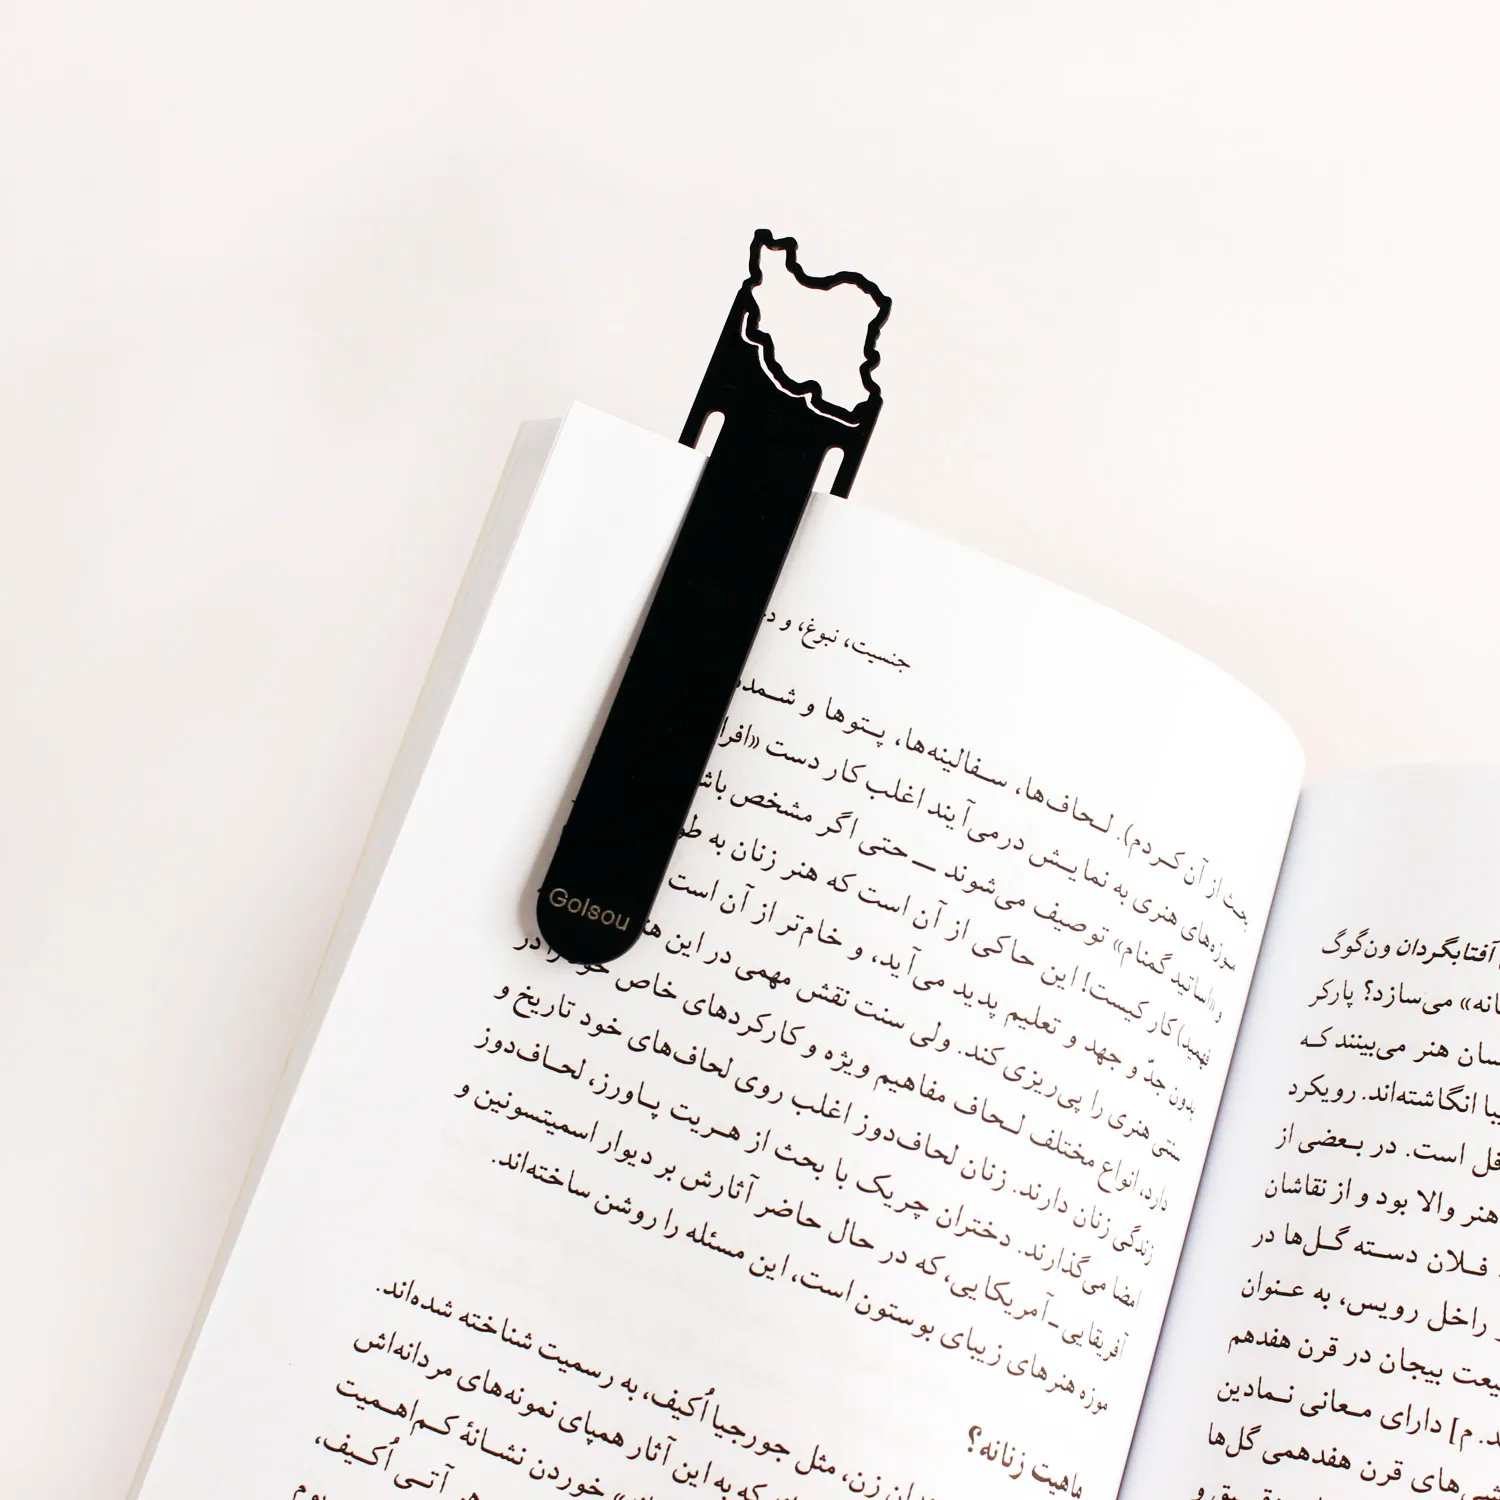 جنسیت، نبوغ، و
بحث از آن کردم). لحاف‌ها، سفالینه‌ها، پتوها و
موزه‌های هنری به نمایش درمی‌آیند اغلب کار دست «افرا
و «اساتید گمنام» توصیف می‌شوند — حتی اگر مشخص باش
فهمید) کار کیست! این حاکی از آن است که هنر زنان به
بدون جدّ و جهد و تعلیم پدید می‌آید، و خام‌تر از آن است
سنتی هنری را پی‌ریزی کند. ولی سنت نقش مهمی در این
دارد، انواع مختلف لحاف مفاهیم ویژه و کارکردهای خاص در
زندگی زنان دارند. زنان لحاف‌دوز اغلب روی لحاف‌های خود تاریخ و
امضا می‌گذارند. دختران چریک با بحث از هریت پاورز، لحاف‌دوز
آفریقایی-آمریکایی، که در حال حاضر آثارش بر دیوار اسمیتسونین و
موزه هنرهای زیبای بوستون است، این مسئله را روشن ساخته‌اند.
ماهیت زنانه؟
زن، مثل جورجیا اُکیف، به رسمیت شناخته شده‌اند.
که به این آثار همپای نمونه‌های مردانه‌اش
خوردن نشانهٔ کم‌اهمیت
آتی اُکیف،
Golsou
آفتابگردان ون‌گوگ
می‌سازد؟ پارکر
هنر می‌بینند که
انگاشته‌اند. رویکرد
است. در بعضی از
هنر والا بود و از نقاشان
فلان دسته گل‌ها در
راخل رویس، به عنوان
بیجان در قرن هفدهم
م] دارای معانی نمادین
های قرن هفدهمی گل‌ها